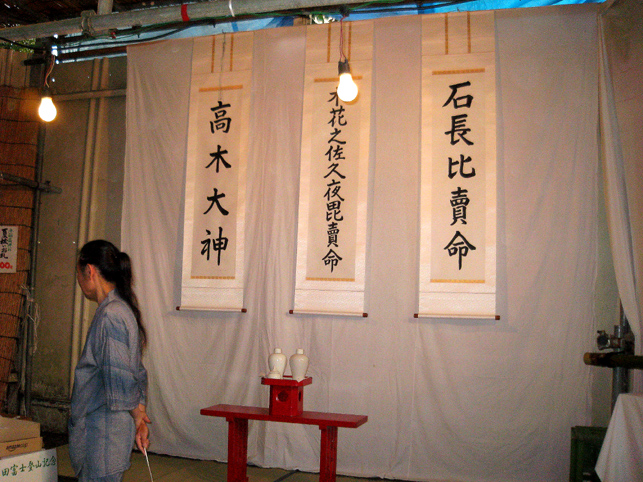 石長比賣命
木花之佐久夜毘賣命
高木大神
田富士登山記念